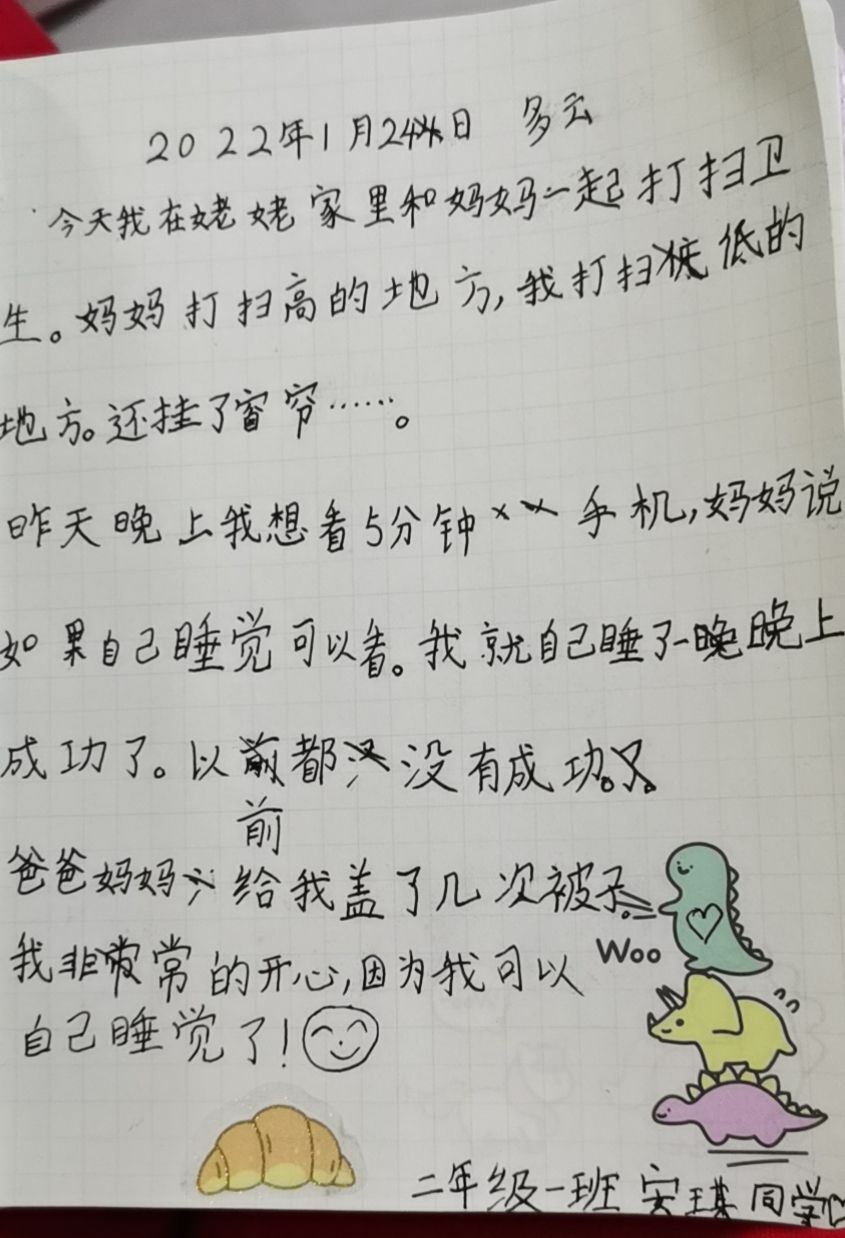 2022年1月24日 多云
今天我在姥姥家里和妈妈一起打扫卫
生。妈妈打扫高的地方,我打扫低的
地方。还挂了窗帘……。
昨天晚上我想看5分钟手机,妈妈说
如果自己睡觉可以看。我就自己睡了一晚晚上
成功了。以前都没有成功。
爸爸妈妈给我盖了几次被子。
我非常的开心,因为我可以
自己睡觉了!
Woo
二年级一班 安琪 同学